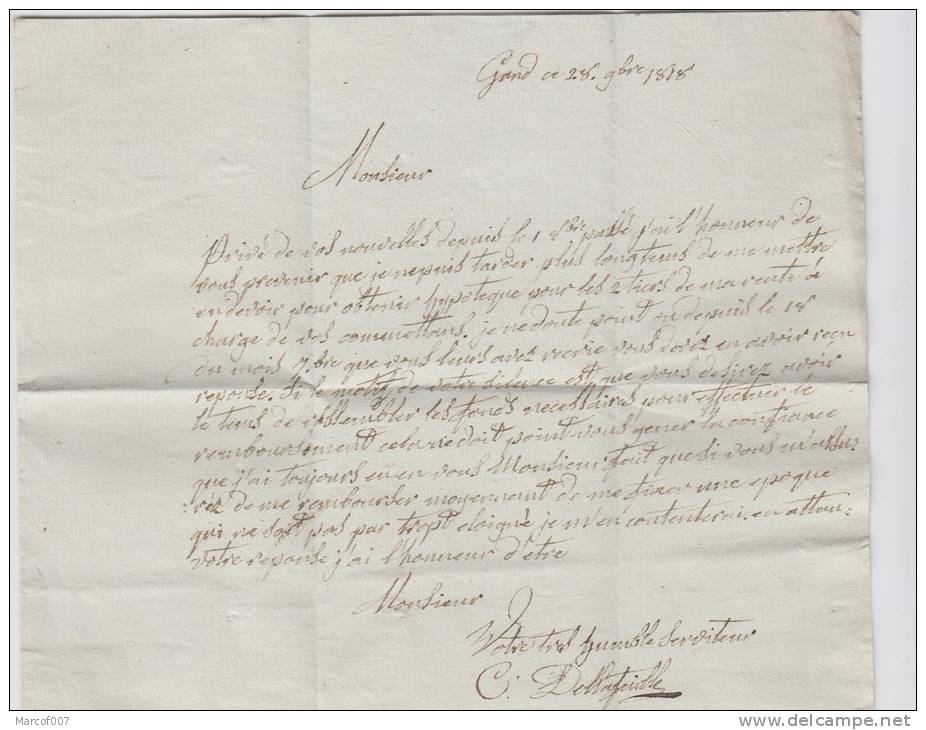 Gand ce 28. 9bre 1818
Monsieur
Privé de vos nouvelles depuis le 1 8bre passé j'ai l'honneur de
vous prevenir que je nepuis tarder plus longtems de me mettre
en devoir pour obtenir hypoteque pour les 2 tiers de ma rente à
charge de vos commettans. je ne doute point ou depuis le 18
du mois 7.bre que vous leurs avez recrie vous devez en avoir recu
reponse. Si le motif de votre silence est que vous desirez avoir
le tems de rassembler les fonds necessaires pour effectuer le
remboursement cela ne doit point vous gener la confiance
que j'ai toujours eu en vous Monsieur fait que si vous m'assu-
rez de me rembourser moyennant de me fixer une epoque
qui ne soit pas par trop eloigné je m'en contenterai. en atten:
votre reponse j'ai l'honneur d'être
Monsieur
Votre tres humble Serviteur
C.
Marcof007
www.delcampe.net